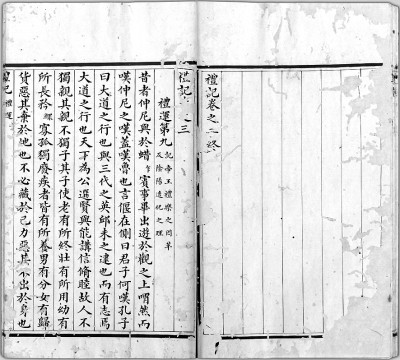 禮記卷之二終
禮記 之三
禮運第九 記帝王禮樂之因革
及陰陽造化之理
昔者仲尼與於蜡 賓事畢出遊於觀之上喟然而
嘆仲尼之嘆蓋嘆魯也言偃在側曰君子何嘆孔子
曰大道之行也與三代之英丘未之逮也而有志焉
大道之行也天下為公選賢與能講信脩睦故人不
獨親其親不獨子其子使老有所終壯有所用幼有
所長矜 寡孤獨廢疾者皆有所養男有分女有歸
貨惡其棄於地也不必藏於己力惡其不出於身也
禮記 禮運